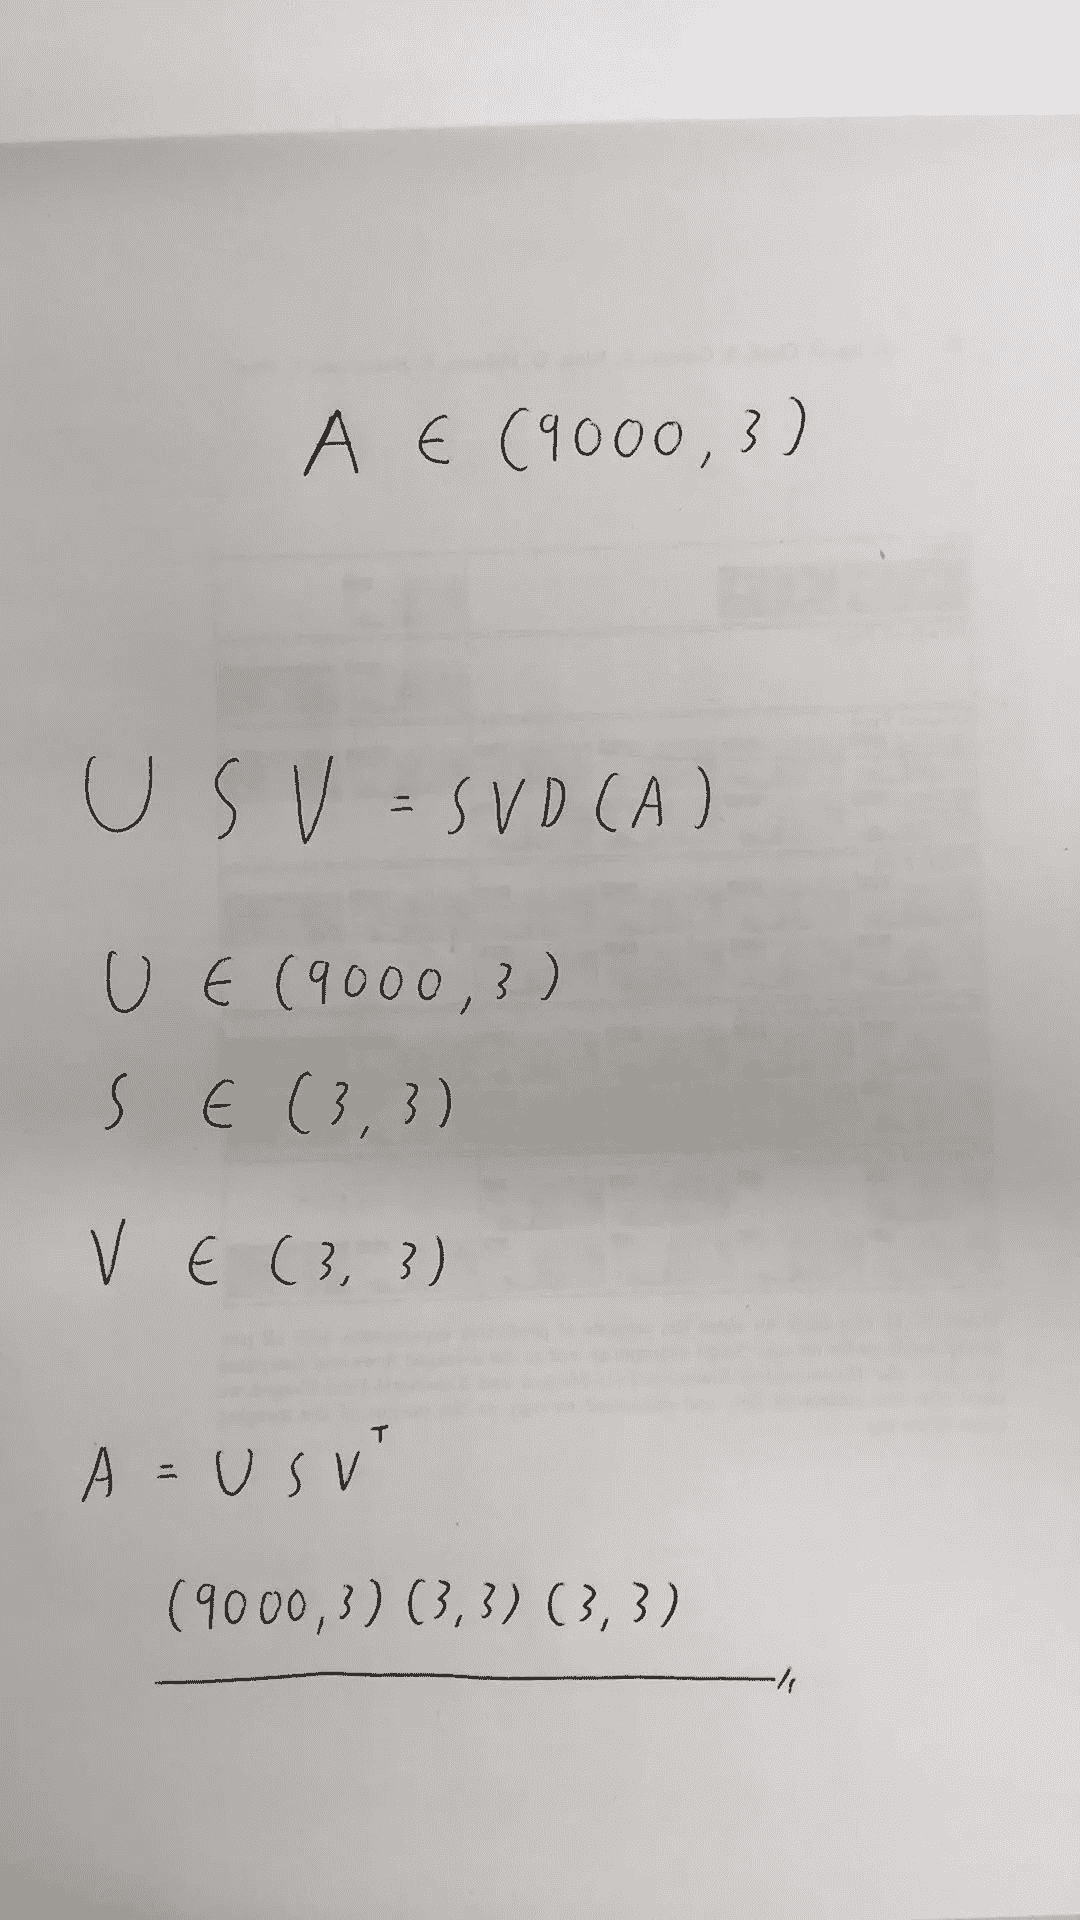 A ∈ (9000, 3)
U S V = SVD(A)
U ∈ (9000, 3)
S ∈ (3, 3)
V ∈ (3, 3)
A = U S Vᵀ
(9000,3) (3,3) (3,3)